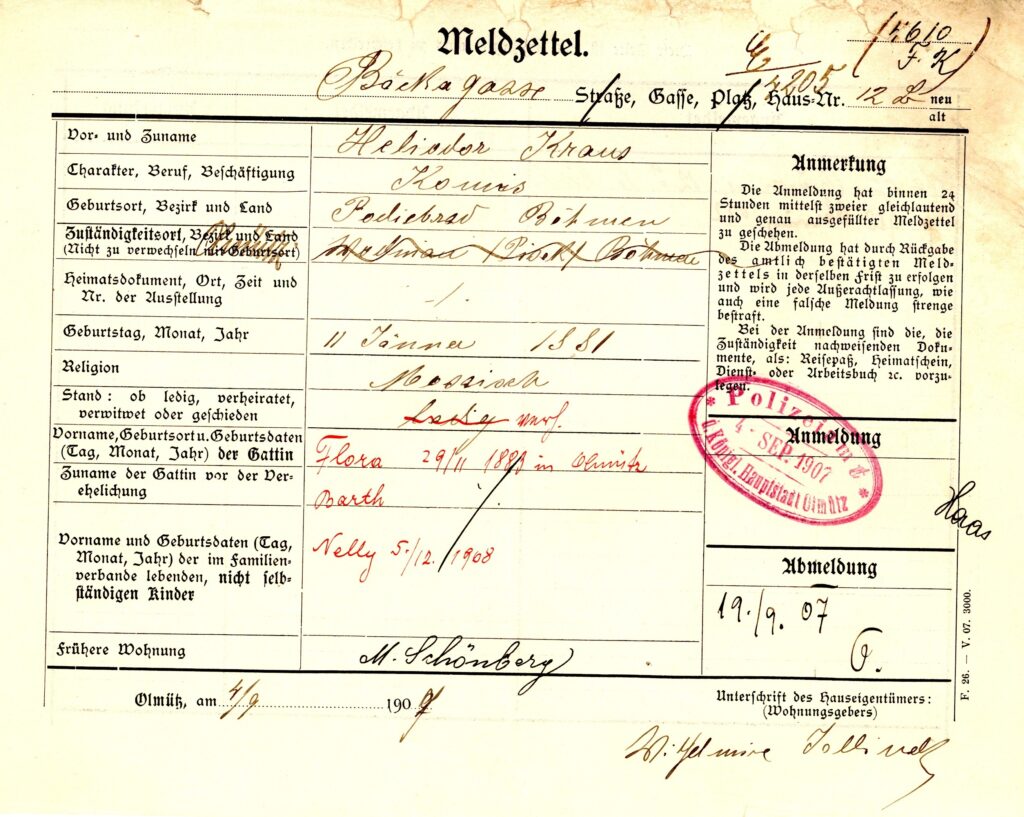 Meldzettel.
(4610
F. K
E
4205
Bäckagasse Straße, Gasse, Platz, Haus-Nr. 12 neu
alt
Vor- und Zuname Heliodor Kraus
Charakter, Beruf, Beschäftigung Komis
Geburtsort, Bezirk und Land Podiebrad Böhmen
Zuständigkeitsort, Bezirk und Land
(Nicht zu verwechseln mit Geburtsort) Böhmen
Heimatsdokument, Ort, Zeit und
Nr. der Ausstellung -/.
Geburtstag, Monat, Jahr 11 Jänner 1881
Religion Mosaisch
Stand: ob ledig, verheiratet,
verwitwet oder geschieden ledig verh.
Vorname, Geburtsort u. Geburtsdaten
(Tag, Monat, Jahr) der Gattin Flora 29/11 in Olmütz
Zuname der Gattin vor der Ver-
ehelichung Barth
Vorname und Geburtsdaten (Tag,
Monat, Jahr) der im Familien-
verbande lebenden, nicht selb-
ständigen Kinder Nelly 5./12. 1908
Frühere Wohnung M. Schönberg
Anmerkung
Die Anmeldung hat binnen 24
Stunden mittelst zweier gleichlautend
und genau ausgefüllter Meldzettel
zu geschehen.
Die Abmeldung hat durch Rückgabe
des amtlich bestätigten Meld-
zettels in derselben Frist zu erfolgen
und wird jede Außerachtlassung, wie
auch eine falsche Meldung strenge
bestraft.
Bei der Anmeldung sind die, die
Zuständigkeit nachweisenden Doku-
mente, als: Reisepaß, Heimatschein,
Dienst- oder Arbeitsbuch ꝛc. vorzu-
legen.
Anmeldung
* Polizeiamt *
4 - SEP. 1907
d. Königl. Hauptstadt Olmütz
Haas
Abmeldung
19./9. 07
F. 26. — V. 07. 3000.
Olmütz, am 4/9 1907
Unterschrift des Hauseigentümers:
(Wohnungsgebers)